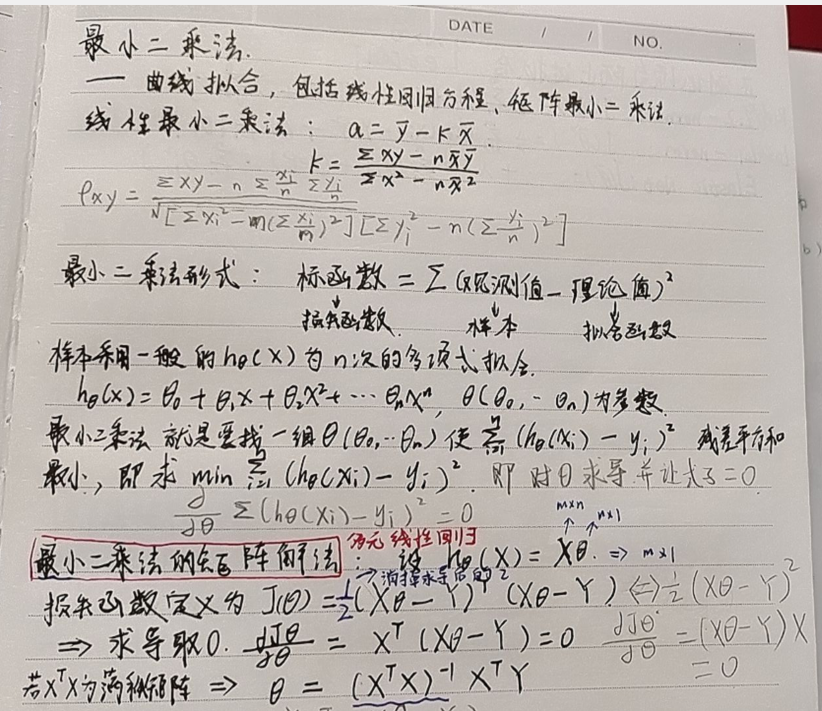 DATE / / NO.
最小二乘法.
— 曲线拟合，包括线性回归方程、矩阵最小二乘法.
线性最小二乘法： a = y̅ - k x̅.
k = (Σxy - n x̅ y̅) / (Σx² - n x̅²)
ρxy = (Σxy - n Σ(xi/n) Σ(yi/n)) / √([Σxi² - m(Σ(xi/m))²][Σyi² - n(Σ(yi/n))²])
最小二乘法形式： 标函数 = Σ(观测值 - 理论值)²
损失函数 样本 拟合函数
样本采用一般的 hθ(x) 为 n次的多项式拟合.
hθ(x) = θ₀ + θ₁x + θ₂x² + ⋯ θₙxⁿ, θ(θ₀, ‑ θₙ)为参数.
最小二乘法就是要找一组θ(θ₀,⋯θₙ) 使 Σⁿᵢ₌₁ (hθ(xi) - yi)² 残差平方和
最小, 即求 min Σⁿᵢ₌₁ (hθ(xi) - yi)². 即对θ求导并让式子=0.
∂/∂θ Σ(hθ(xi) - yi)² = 0
多元线性回归 m×n n×1
最小二乘法的矩阵解法： 设 hθ(X) = Xθ. ⇒ m×1
→ 消掉求导后的2
损失函数定义为 J(θ) = ½(Xθ - Y)ᵀ(Xθ - Y) ⇔ ½(Xθ - Y)²
⇒ 求导取0. ∂Jθ/∂θ = Xᵀ(Xθ - Y) = 0 ∂Jθ/∂θ = (Xθ - Y)X
= 0
若XᵀX为满秩矩阵 ⇒ θ = (XᵀX)⁻¹XᵀY